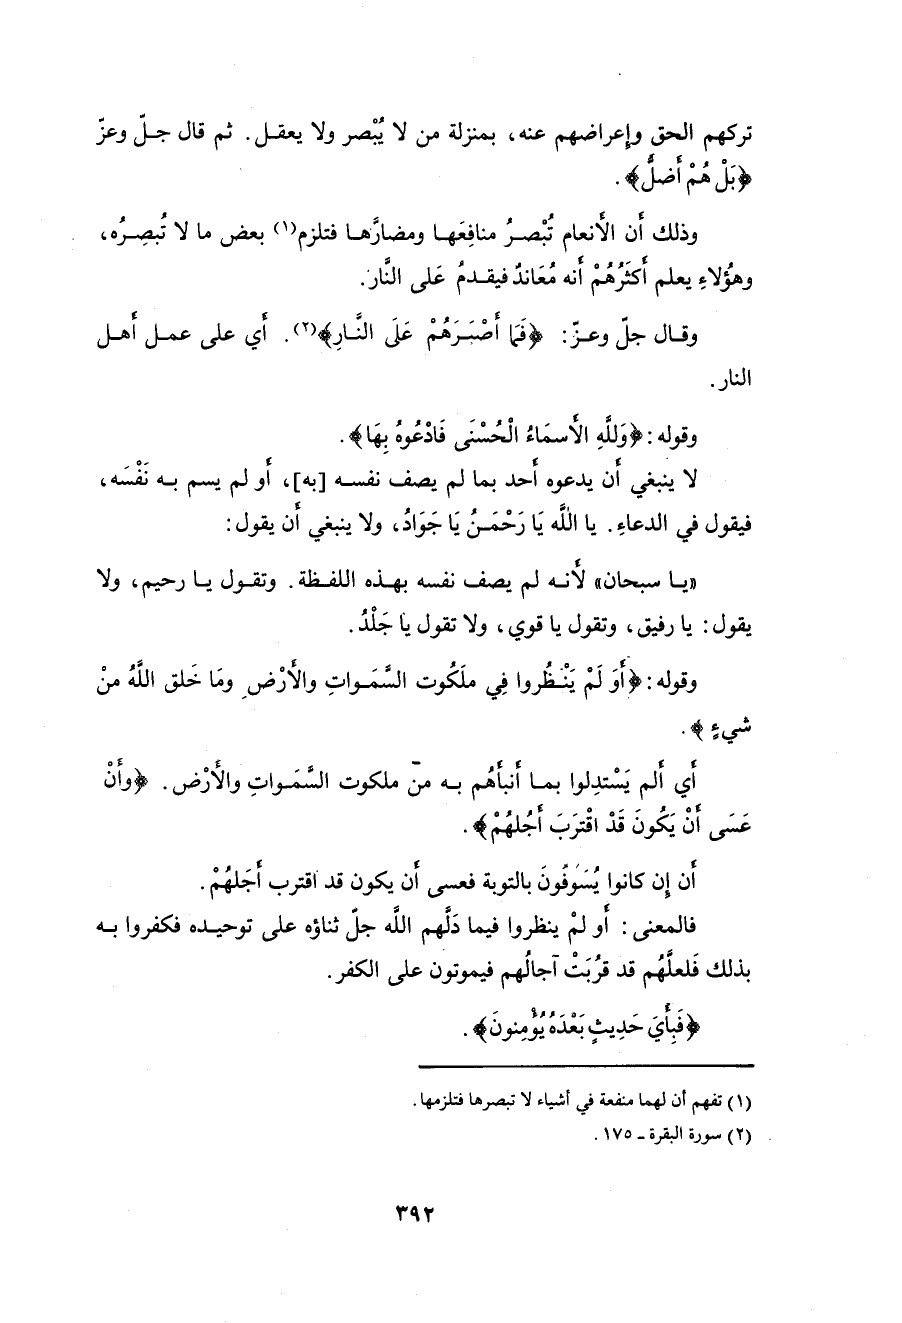 تركهم الحق وإعراضهم عنه، بمنزلة من لا يُبْصر ولا يعقل. ثم قال جلّ وعزّ
﴿بَلْ هُمْ أَضلُّ﴾.
وذلك أن الأنعام تُبْصرُ منافِعَها ومضارَّها فتلزم(١) بعض ما لا تُبصِرُه،
وهؤُلاءِ يعلم أَكثَرُهُمْ أَنه مُعَاندٌ فيقدمُ عَلى النَّار.
وقال جلّ وعزّ: ﴿فَمَا أَصْبَرَهُمْ عَلَى النَّارِ﴾(٢). أي على عمل أهل
النار.
وقوله: ﴿وَللَّهِ الأَسمَاءُ الْحُسْنَى فَادْعُوهُ بِهَا﴾.
لا ينبغي أَن يدعوه أَحد بما لم يصف نفسه [به]، أَو لم يسم به نَفْسَه،
فيقول في الدعاءِ. يا اللَّه يَا رَحْمَنُ يَا جَوَادُ، ولا ينبغي أَن يقول:
«يا سبحان» لأَنه لم يصف نفسه بهذه اللفظة. وتقول يا رحيم، ولا
يقول: يا رفيق، وتقول يا قوي، ولا تقول يا جَلْدُ.
وقوله: ﴿أَوَ لَمْ يَنْظُروا فِي ملَكُوت السَّمَواتِ والأَرْضِ ومَا خَلق اللَّهُ منْ
شيءٍ﴾.
أَي ألم يَسْتدِلوا بما أَنبأَهُم به من ملكوت السَّمَواتِ والأَرْض. ﴿وأَنْ
عَسَى أَنْ يَكُونَ قَدْ اقْتَرَبَ أَجُلهُمْ﴾.
أَن إن كانوا يُسَوفُونَ بالتوبة فعسى أَن يكون قد اقترب أَجَلهُمْ.
فالمعنى: أَو لمْ ينظروا فيما دَلَّهم اللَّه جلّ ثناؤه على توحيده فكفروا به
بذلك فَلعلَّهُم قد قرُبَتْ آجالُهم فيموتون على الكفر.
﴿فَبِأَيِّ حَدِيثٍ بَعْدَهُ يُؤْمِنونَ﴾.
(١) تفهم أن لهما منفعة في أشياء لا تبصرها فتلزمها.
(٢) سورة البقرة ـ ١٧٥.
٣٩٢